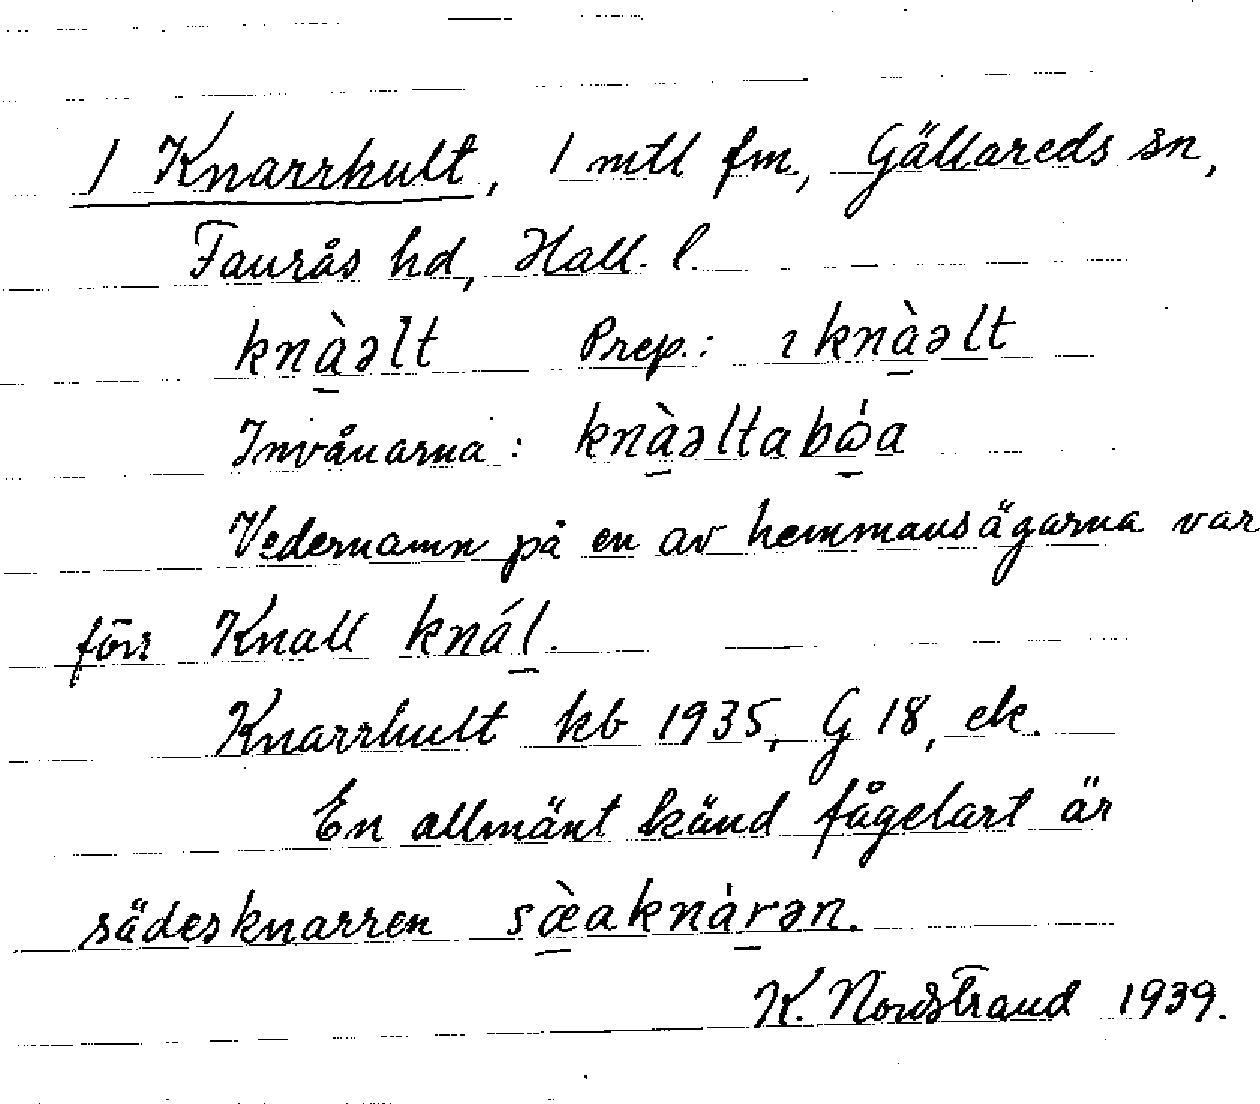 1 Knarrhult, 1 mtl fm., Gällareds sn,
Faurås hd, Hall. l.
knàəlt Prep.: ı knàəlt
Invånarna: knàəltabω̍a
Vedernamn på en av hemmansägarna var
förr Knall knál.
Knarrhult kb 1935, G 18, ek.
En allmänt känd fågelart är
sädesknarren sæ̀aknàrən.
K. Nordstrand 1939.